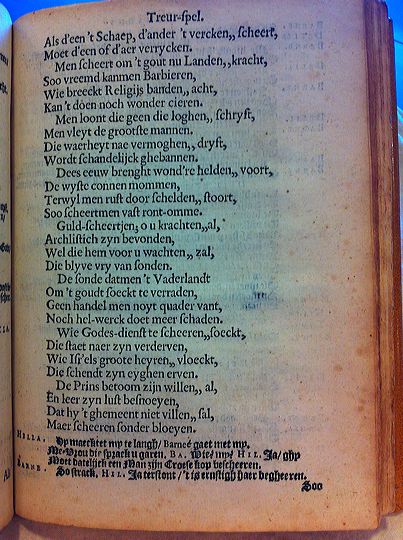 Treur-spel.
Als d'een 't Schaep, d'ander 't vercken,, scheert,
Moet d'een of d'aer verrycken.
Men scheert om 't gout nu Landen,,kracht,
Soo vreemd kanmen Barbieren,
Wie breeckt Religijs banden,, acht,
Kan 't doen noch wonder cieren.
Men loont die geen die loghen,, schryft,
Men vleyt de grootste mannen.
Die waerheyt nae vermoghen,, dryft,
Wordt schandelijck ghebannen.
Dees eeuw brenght wond're helden,, voort,
De wyste connen mommen,
Terwyl men rust door schelden,, stoort,
Soo scheertmen vast ront-omme.
Guld-scheertjen; o u krachten,,al,
Archlistich zyn bevonden,
Wel die hem voor u wachten,, zal,
Die blyve vry van sonden.
De sonde datmen 't Vaderlandt
Om 't goudt soeckt te verraden,
Geen handel men noyt quader vant,
Noch hel-werck doet meer schaden.
Wie Godes-dienst te scheeren,,soeckt,
Die staet naer zyn verderven,
Wie Isr'els groote heyren,, vloeckt,
Die schendt zyn eyghen erven.
De Prins betoom zijn willen,, al,
En leer zyn lust besnoeyen,
Dat hy 't ghemeent niet villen,, sal,
Maer scheeren sonder bloeyen.
HELLA. Hy maecktet my te langh/ Barneé gaet met my.
BARNE. Me-Vrou die sprack u garen. BA. Wie? my? HIL. Ja/ ghy
Moet datelijck een Man zijn Croese kop bescheeren.
So strack. HIL. Ja terstont/ 't is ernstigh haer begheeren.
Soo